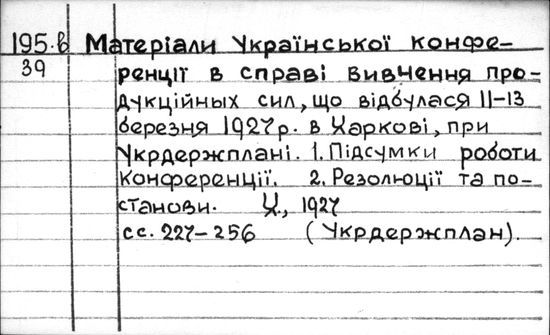 195.в Матеріали Української конфе-
39 ренції в справі вивчення про-
дукційных сил, що відбулася 11-13
березня 1927 р. в Харкові, при
Укрдержплані. 1. Підсумки роботи
конференції. 2. Резолюції та по-
станови. Х., 1927
сс. 227-256 (Укрдержплан).